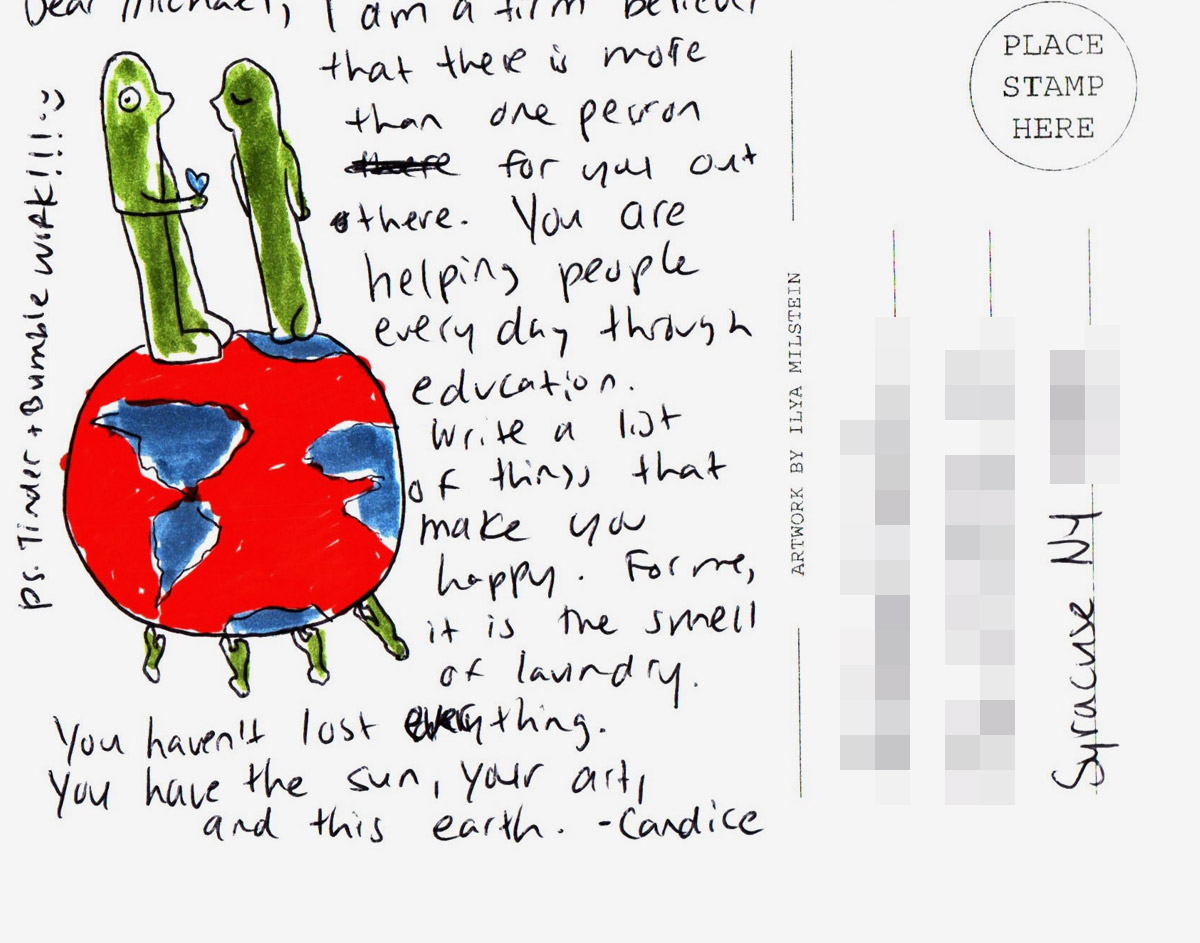 Dear Michael, I am a firm believer
that there is more
than one person
for you out
there. You are
helping people
every day through
education.
Write a list
of things that
make you
happy. For me,
it is the smell
of laundry.
You haven't lost everything.
You have the sun, your art,
and this earth. -Candice
ps. Tinder + Bumble work!!! :)
ARTWORK BY ILYA MILSTEIN
PLACE
STAMP
HERE
Syracuse NY